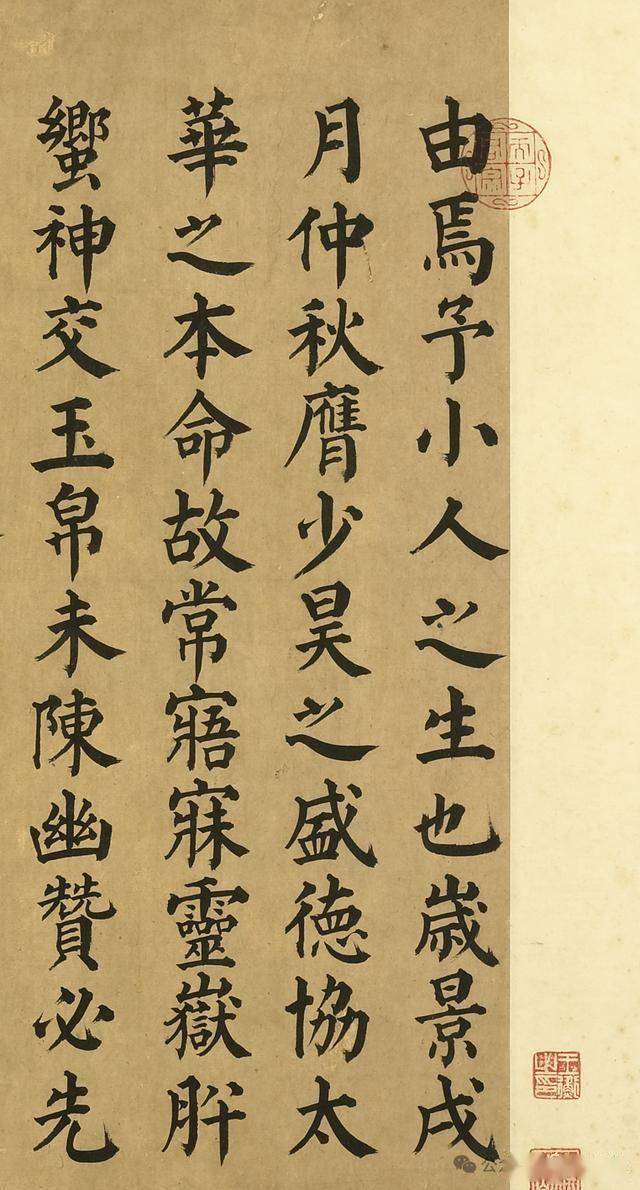 由焉予小人之生也歲景戌
月仲秋膺少昊之盛徳協太
華之本命故常寤寐靈嶽肸
蠁神交玉帛未陳幽贊必先